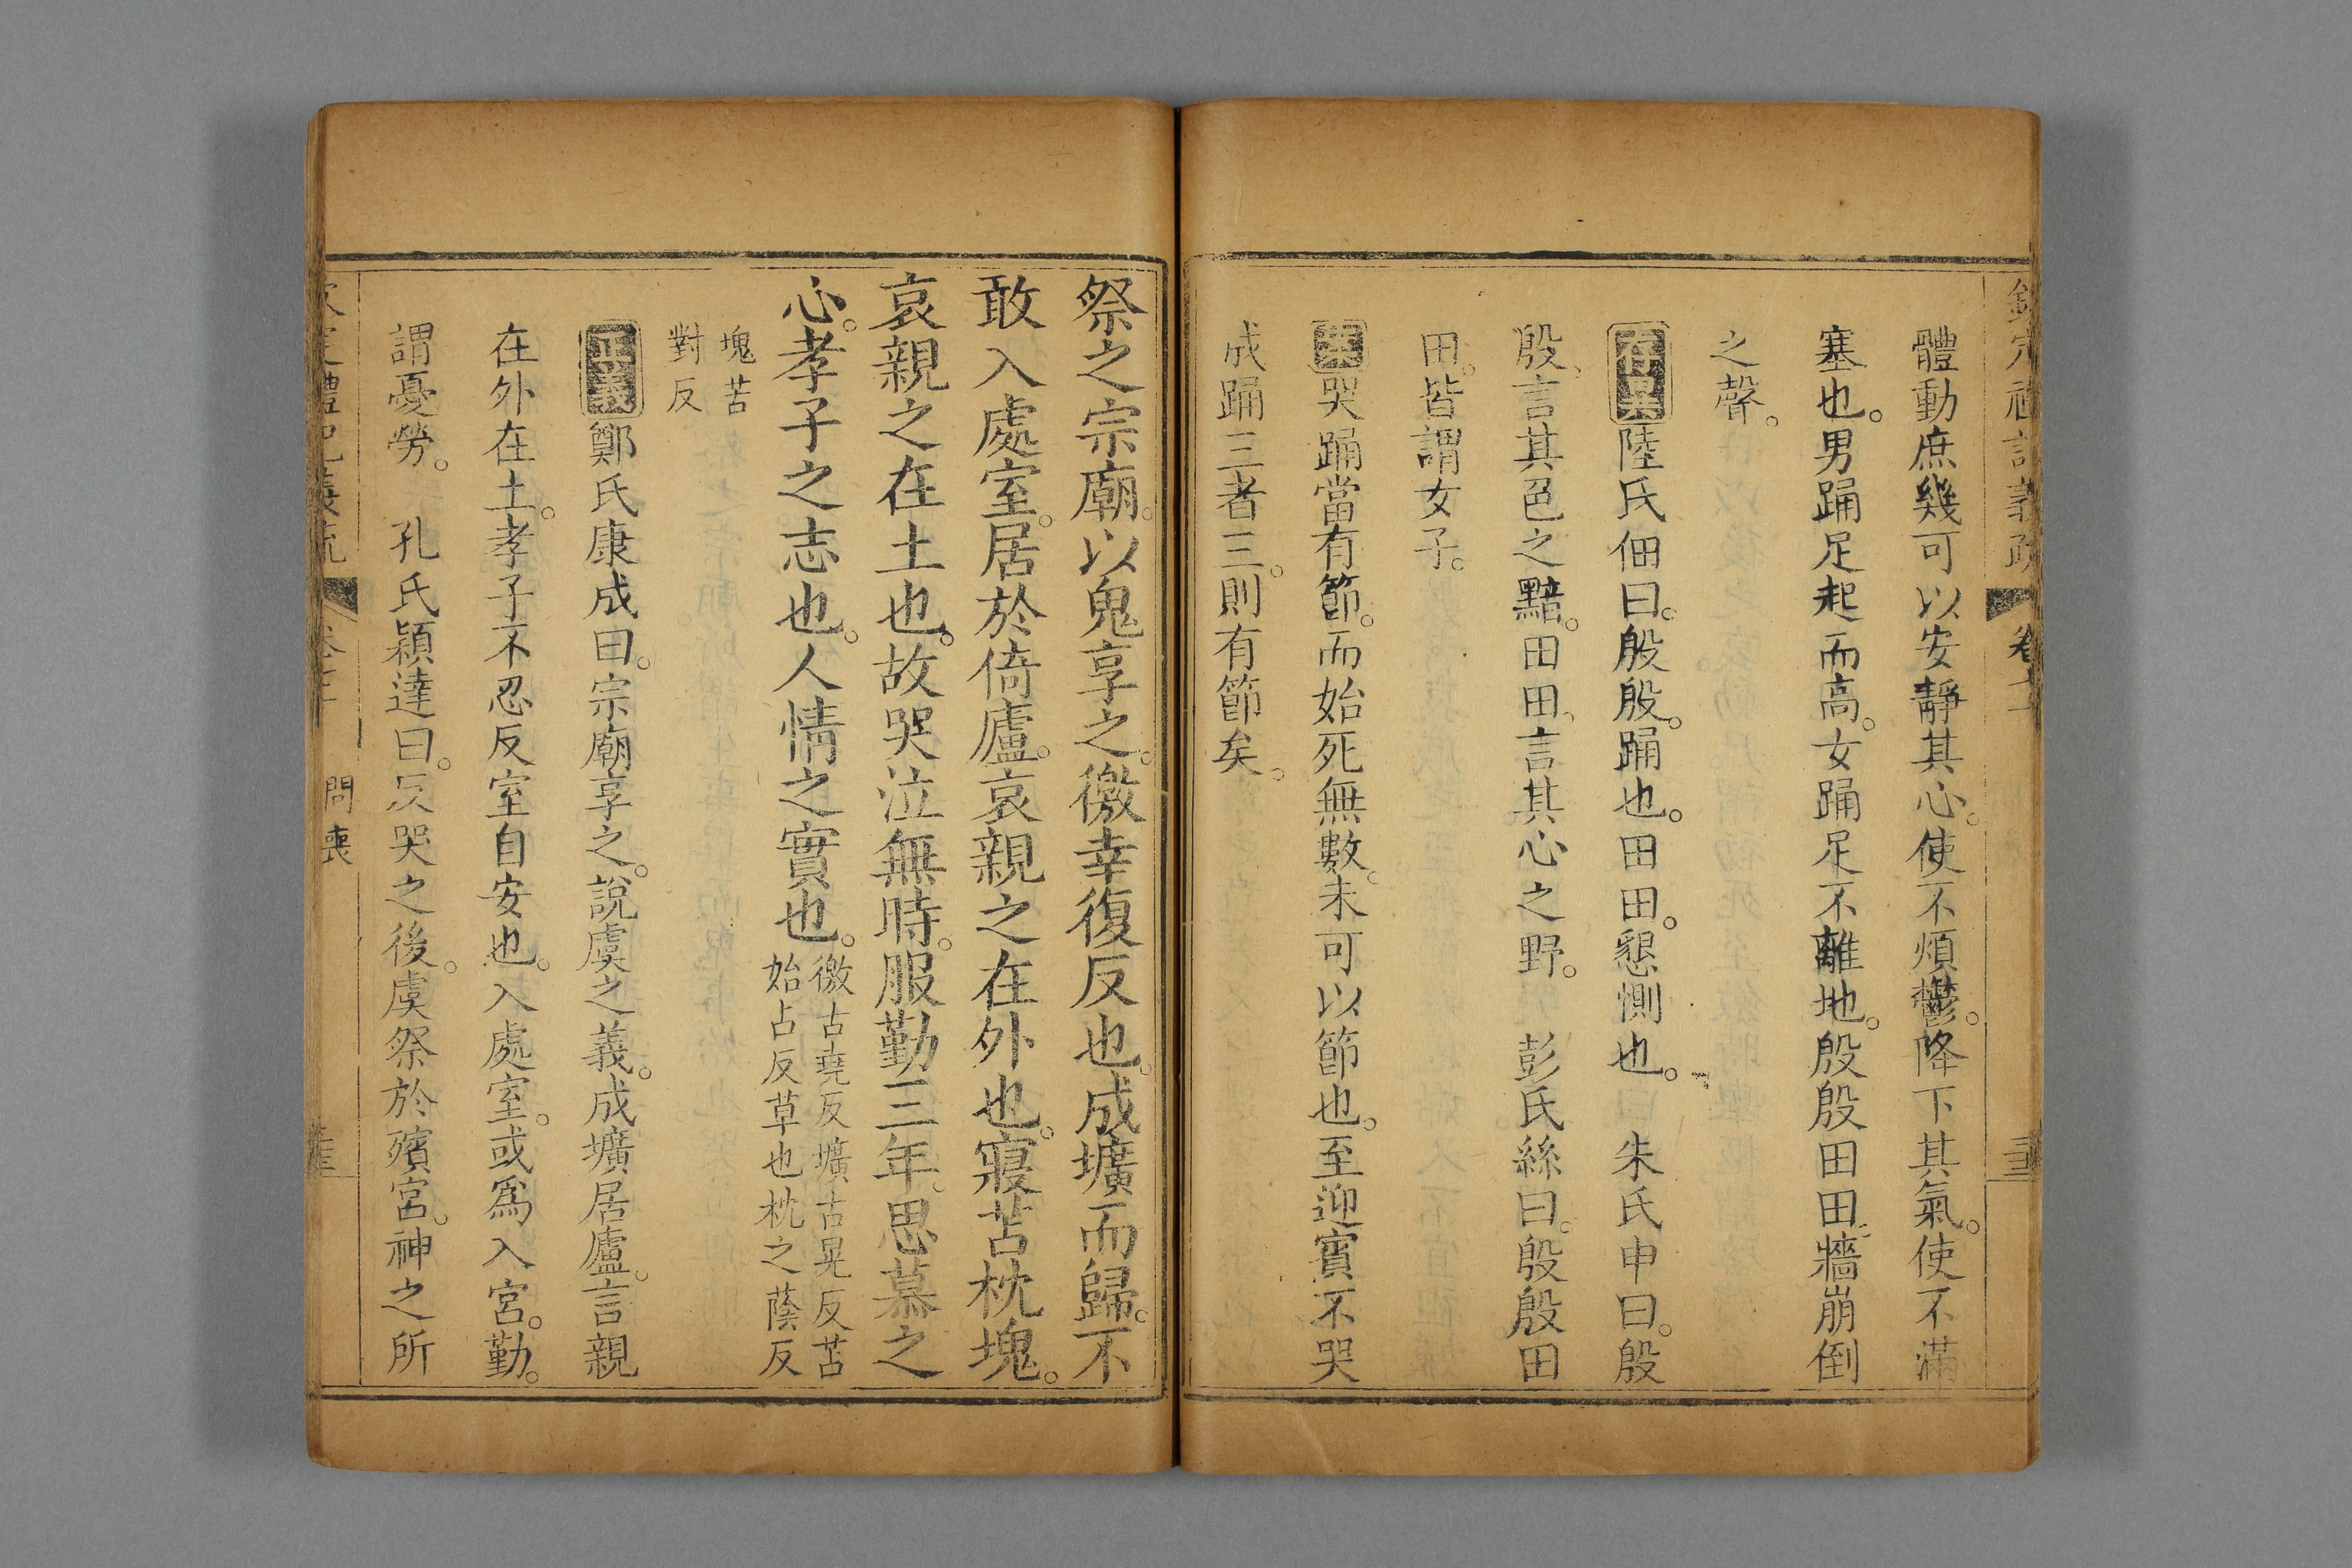 欽定禮記義疏 卷七十
體動庶幾可以安靜其心。使不煩鬱。降下其氣。使不滿
塞也。男踊足起而高。女踊足不離地。殷殷田田、牆崩倒
之聲。
存異陸氏佃曰。殷殷。踊也。田田。懇惻也。 朱氏申曰。殷
殷、言其色之黯。田田、言其心之野。 彭氏絲曰。殷殷田
田。皆謂女子。
案哭踊當有節。而始死無數。未可以節也。至迎賓不哭
成踊三者三。則有節矣。
祭之宗廟。以鬼享之。徼幸復反也。成壙而歸。不
敢入處室。居於倚廬。哀親之在外也。寢苫枕塊。
哀親之在土也。故哭泣無時。服勤三年。思慕之
心。孝子之志也。人情之實也。徼古堯反壙古晃反苫
始占反草也枕之蔭反
塊苦
對反
正義鄭氏康成曰。宗廟享之。說虞之義。成壙居廬。言親
在外在土。孝子不忍反室自安也。入處室。或爲入宮。勤。
謂憂勞。 孔氏穎達曰。反哭之後。虞祭於殯宮。神之所
欽定禮記義疏 問喪